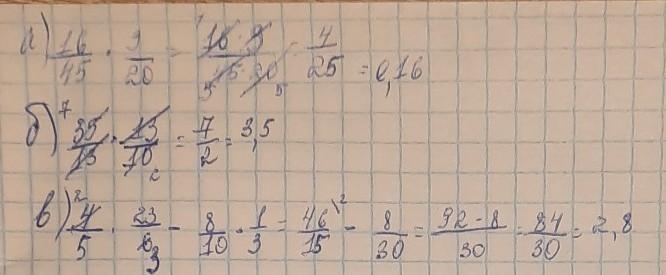 а) 16/45 · 9/20 = 16·9/45·20 = 4/25 = 0,16
б) 35/13 · 13/10 = 7/2 = 3,5
в) 4/5 · 23/6 - 8/10 · 1/3 = 46/15 - 8/30 = 92-8/30 = 84/30 = 2,8